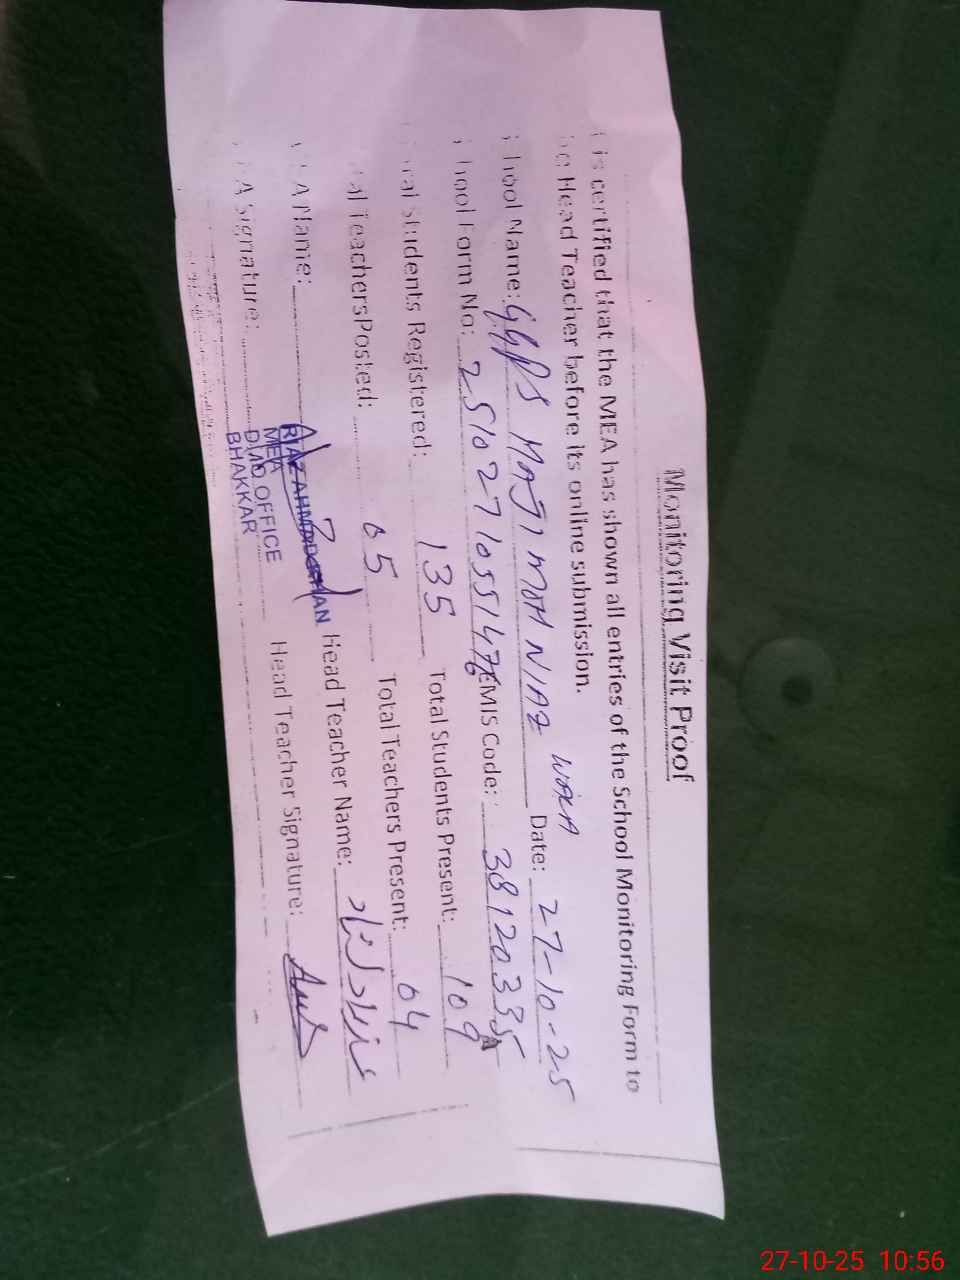 Monitoring Visit Proof
is certified that the MEA has shown all entries of the School Monitoring Form to
Head Teacher before its online submission.
hool Name: GGPS HAJI MOH NIAZ WALA Date: 27-10-25
hool Form No: EMIS Code: 38120335
Students Registered: 135 Total Students Present: 109
al TeachersPosted: 05 Total Teachers Present: 04
A Name: RIAZ AHMAD KHAN Head Teacher Name:
A Signature: MEA Head Teacher Signature:
D.M.O. OFFICE
BHAKKAR
27-10-25 10:56